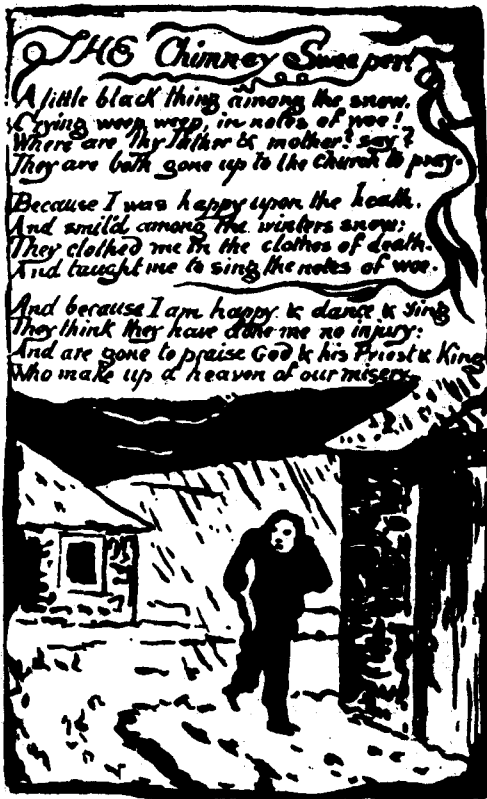 THE Chimney Sweeper
A little black thing among the snow.
Crying weep weep, in notes of woe!
Where are thy father & mother? say?
They are both gone up to the church to pray.
Because I was happy upon the heath.
And smil'd among the winters snow:
They clothed me in the clothes of death.
And taught me to sing the notes of woe.
And because I am happy & dance & sing
They think they have done me no injury:
And are gone to praise God & his Priest & King
Who make up a heaven of our misery.